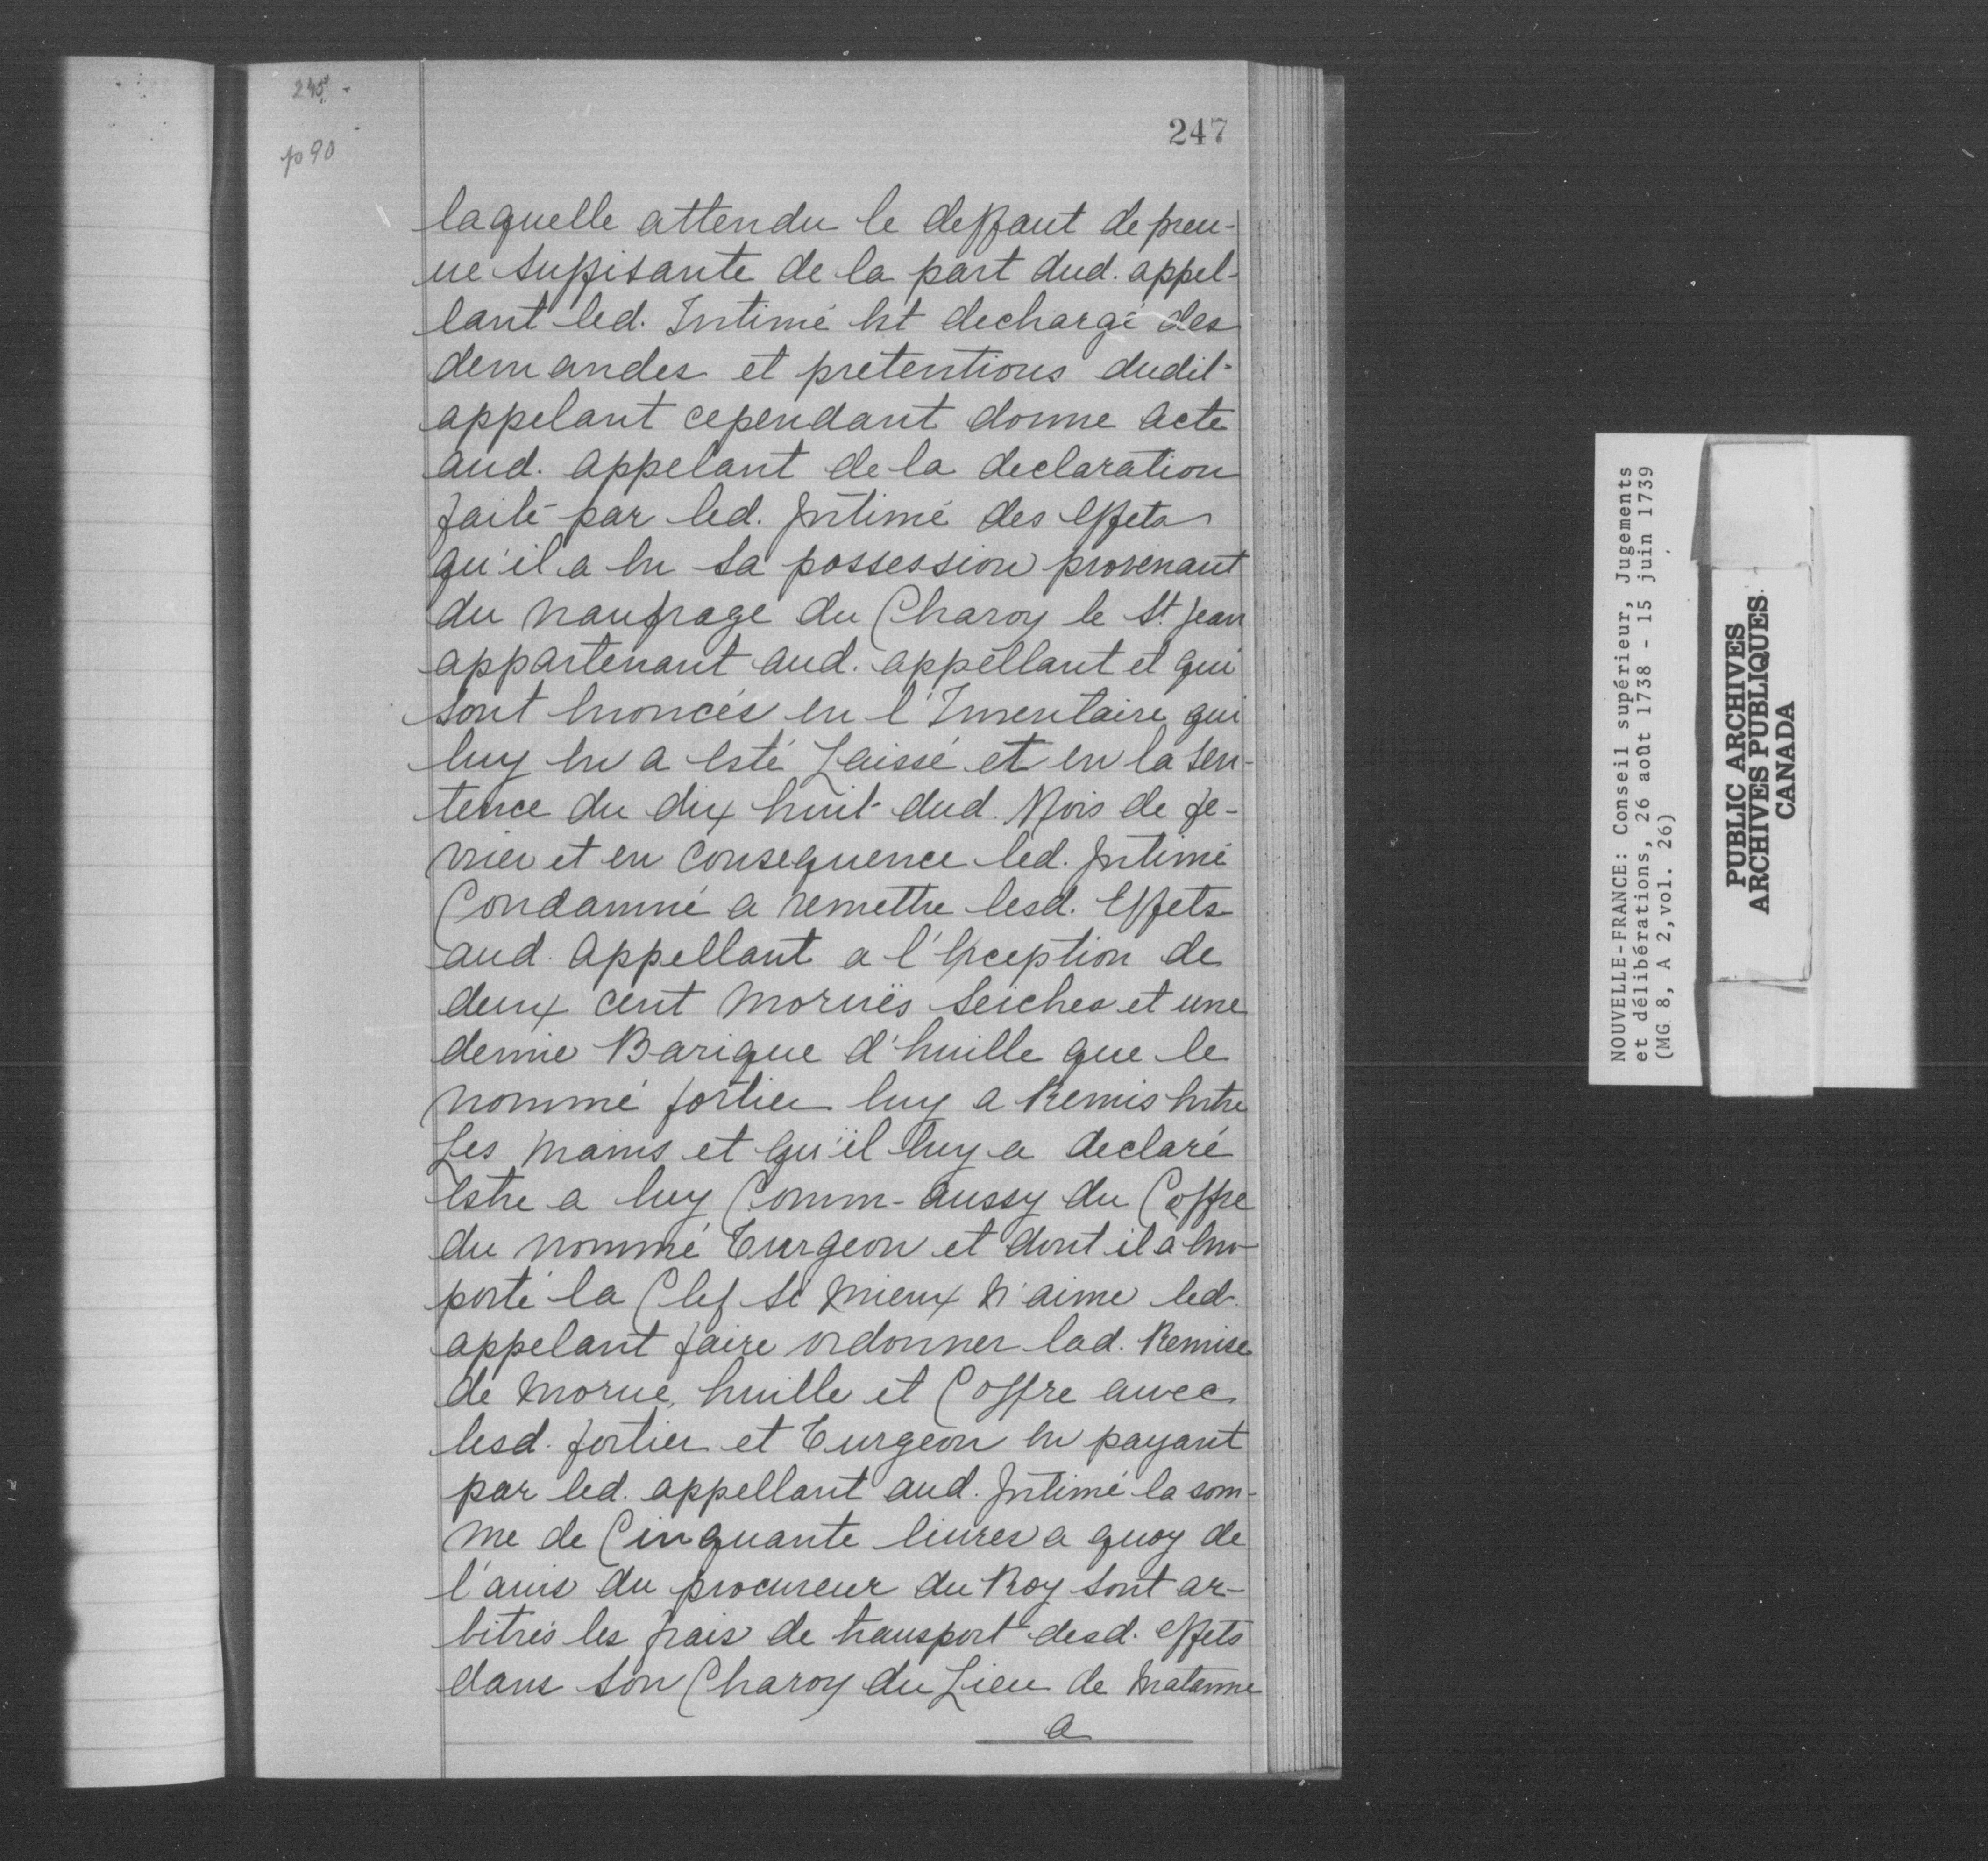 245
p 90
247
laquelle attendu le deffaut de preu-
ue suffisante de la part dud. appel-
lant led. Intimé Est dechargé des
demandes et pretentions dudit
appelant cependant donne acte
aud. appelant de la declaration
faite par led. Intimé des Effets
qu'il a En sa possession provenant
du naufrage du Charoy le St. Jean
appartenant aud. appellant et qui
sont Enoncés en l'Inuentaire qui
luy En a Esté Laissé et en la sen-
tence du dix huit dud. Mois de fe-
vrier et en consequence led. Intimé
Condamné a remettre lesd. Effets
aud. appellant a l'Exception de
deux cent Moruës seiches et une
demie Barique d'huille que le
nommé fortier luy a Remis Entre
Les mains et qu'il luy a declaré
Estre a luy Comm- aussy du Coffre
du nommé Turgeon et dont il a Em-
porté la Clef si Mieux N'aime led.
appelant faire ordonner lad. Remise
de Morue, huille et Coffre auec
lesd. fortier et Turgeon En payant
par led. appellant aud. Intimé la som-
me de Cinquante liures a quoy de
l'auis du procureur du Roy sont ar-
bitrés les frais de transport desd. effets
dans son Charoy du Lieu de Matanne
a
NOUVELLE-FRANCE: Conseil supérieur, Jugements
et délibérations, 26 août 1738 - 15 juin 1739
(MG 8, A 2, vol. 26)
PUBLIC ARCHIVES
ARCHIVES PUBLIQUES
CANADA